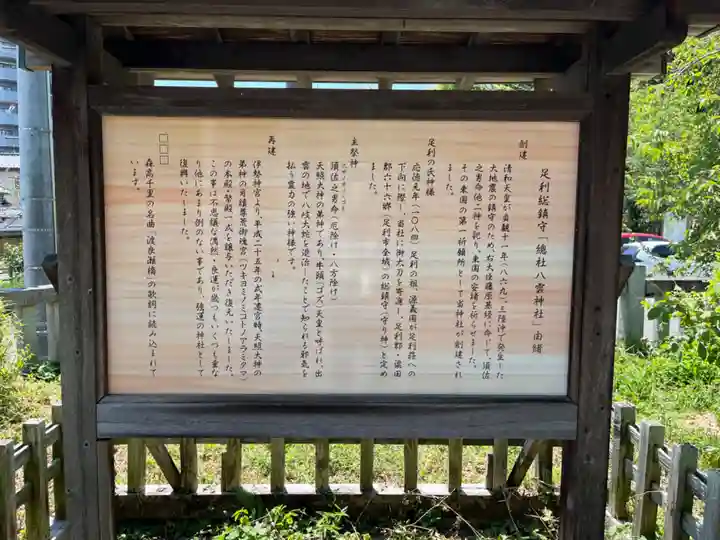 足利総鎮守「總社八雲神社」由緒
創建
清和天皇が貞観十一年(八六九)、三陸沖で発生した
大地震の鎮守のため、右大臣藤原基経に命じて、須佐
之男命他二神を祀り、東国の安穏を祈らせました。
その東国の第一祈願所として当神社が創建され
ました。
足利の氏神様
応徳元年(一〇八四)足利の祖、源義国が足利荘への
下向に際し、当社に御太刀を寄進し、足利郡・梁田
郡六十六郷(足利市全域)の総鎮守(守り神)と定め
ました。
主祭神
須佐之男命(厄除け・八方除け)
天照大神の弟神であり、牛頭(ゴズ)天皇と呼ばれ、出
雲の地で八岐大蛇を退治したことで知られる邪気を
払う霊力の強い神様です。
再建
伊勢神宮より、平成二十五年の式年遷宮時、天照大神の
弟神の月讀尊荒御魂宮(ツキヨミノミコトノアラミタマ)
の本殿・祭殿一式を譲与いただき復元いたしました。
この事は不思議な偶然、良運が幾つもいくつも重な
り他にあまり例のない事であり、強運の神社として
復興いたしました。
□□□
森高千里の名曲「渡良瀬橋」の歌詞に読み込まれて
います。